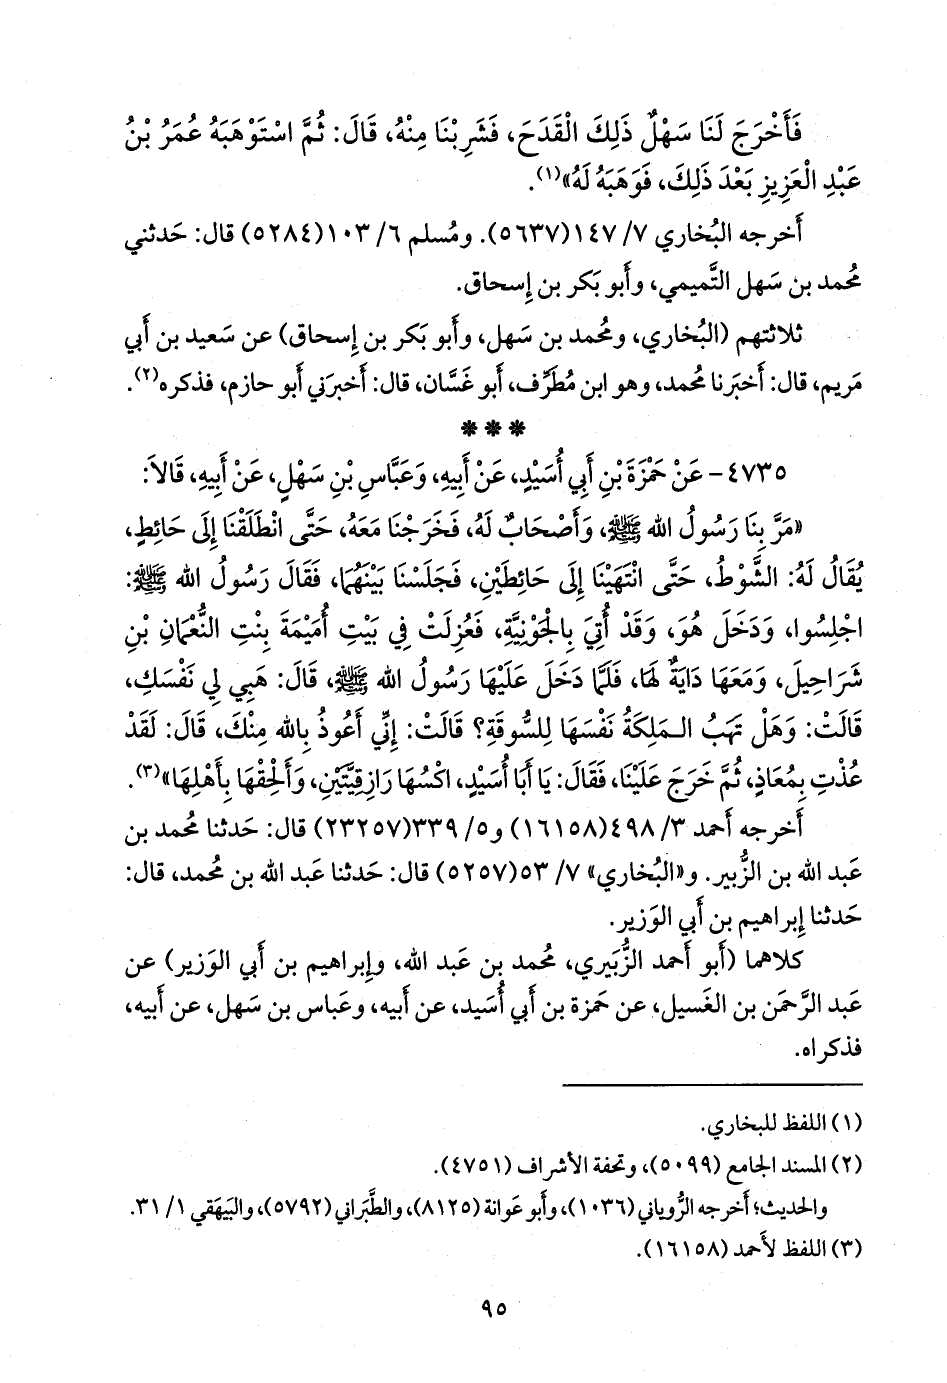 فَأَخْرَجَ لَنَا سَهْلٌ ذَلِكَ الْقَدَحَ، فَشَرِبْنَا مِنْهُ، قَالَ: ثُمَّ اسْتَوْهَبَهُ عُمَرُ بْنُ
عَبْدِ الْعَزِيزِ بَعْدَ ذَلِكَ، فَوَهَبَهُ لَهُ»(١).
أَخرجه البُخاري ٧/ ١٤٧(٥٦٣٧). ومُسلم ٦/ ١٠٣(٥٢٨٤) قال: حَدثني
مُحمد بن سَهل التَّميمي، وأَبو بَكر بن إِسحاق.
ثلاثتهم (البُخاري، ومُحمد بن سَهل، وأَبو بَكر بن إِسحاق) عن سَعيد بن أَبي
مَريم، قال: أَخبَرنا مُحمد، وهو ابن مُطَرِّف، أَبو غَسَّان، قال: أَخبرَني أَبو حازم، فذكره(٢).
* * *
٤٧٣٥- عَنْ حَمْزَةَ بْنِ أَبِي أُسَيْدٍ، عَنْ أَبِيهِ، وَعَبَّاسِ بْنِ سَهْلٍ، عَنْ أَبِيهِ، قَالاَ:
«مَرَّ بِنَا رَسُولُ الله ﷺ، وَأَصْحَابٌ لَهُ، فَخَرَجْنَا مَعَهُ، حَتَّى انْطَلَقْنَا إِلَى حَائِطٍ،
يُقَالُ لَهُ: الشَّوْطُ، حَتَّى انْتَهَيْنَا إِلَى حَائِطَيْنِ، فَجَلَسْنَا بَيْنَهُمَا، فَقَالَ رَسُولُ الله ﷺ:
اجْلِسُوا، وَدَخَلَ هُوَ، وَقَدْ أُتِيَ بِالْجَوْنِيَّةِ، فَعُزِلَتْ فِي بَيْتِ أُمَيْمَةَ بِنْتِ النُّعْمَانِ بْنِ
شَرَاحِيلَ، وَمَعَهَا دَايَةٌ لَهَا، فَلَمَّا دَخَلَ عَلَيْهَا رَسُولُ الله ﷺ، قَالَ: هَبِي لِي نَفْسَكِ،
قَالَتْ: وَهَلْ تَهَبُ الـمَلِكَةُ نَفْسَهَا لِلسُّوقَةِ؟ قَالَتْ: إِنِّي أَعُوذُ بِالله مِنْكَ، قَالَ: لَقَدْ
عُذْتِ بِمُعَاذٍ، ثُمَّ خَرَجَ عَلَيْنَا، فَقَالَ: يَا أَبَا أُسَيْدٍ، اكْسُهَا رَازِقِيَّتَيْنِ، وَأَلْحِقْهَا بِأَهْلِهَا»(٣).
أَخرجه أَحمد ٣/ ٤٩٨(١٦١٥٨) و٥/ ٣٣٩(٢٣٢٥٧) قال: حَدثنا مُحمد بن
عَبد الله بن الزُّبير. و«البُخاري» ٧/ ٥٣(٥٢٥٧) قال: حَدثنا عَبد الله بن مُحمد، قال:
حَدثنا إِبراهيم بن أَبي الوَزير.
كلاهما (أَبو أَحمد الزُّبَيري، مُحمد بن عَبد الله، وإِبراهيم بن أَبي الوَزير) عن
عَبد الرَّحمَن بن الغَسيل، عن حَمزة بن أَبي أُسَيد، عن أَبيه، وعَباس بن سَهل، عن أَبيه،
فذكراه.
(١) اللفظ للبخاري.
(٢) المسند الجامع (٥٠٩٩)، وتحفة الأشراف (٤٧٥١).
والحديث؛ أَخرجه الرُّوياني (١٠٣٦)، وأَبو عَوانة (٨١٢٥)، والطَّبَراني (٥٧٩٢)، والبَيهَقي ١/ ٣١.
(٣) اللفظ لأَحمد (١٦١٥٨).
٩٥